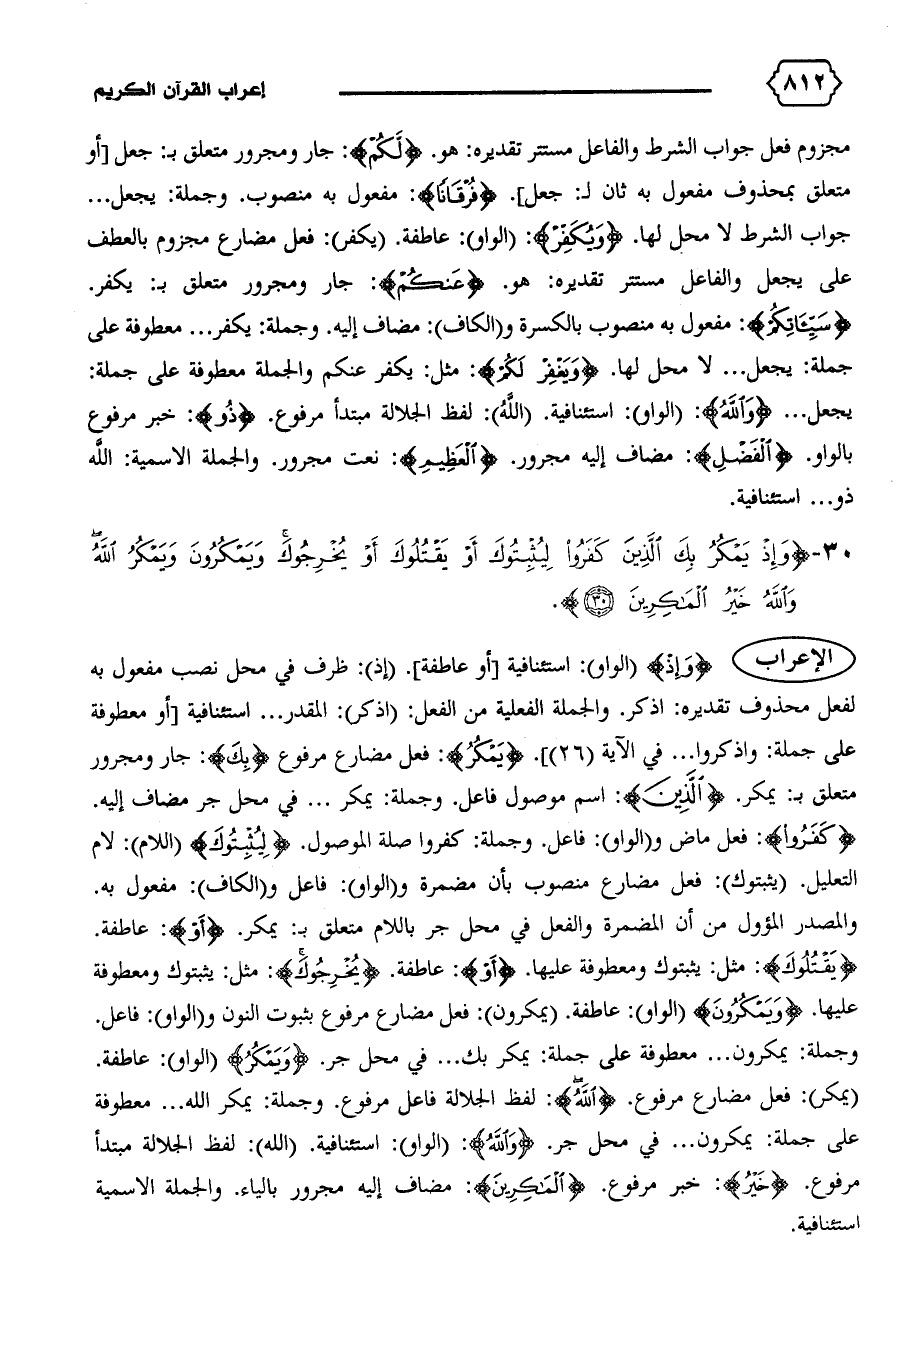 ٨١٢ إعراب القرآن الكريم
مجزوم فعل جواب الشرط والفاعل مستتر تقديره: هو. ﴿لَكُمْ﴾: جار ومجرور متعلق بـ: جعل [أو
متعلق بمحذوف مفعول به ثان لـ: جعل]. ﴿فُرْقَانًا﴾: مفعول به منصوب. وجملة: يجعل...
جواب الشرط لا محل لها. ﴿وَيُكَفِّرْ﴾: (الواو): عاطفة. (يكفر): فعل مضارع مجزوم بالعطف
على يجعل والفاعل مستتر تقديره: هو. ﴿عَنكُمْ﴾: جار ومجرور متعلق بـ: يكفر.
﴿سَيِّئَاتِكُمْ﴾: مفعول به منصوب بالكسرة و(الكاف): مضاف إليه. وجملة: يكفر... معطوفة على
جملة: يجعل... لا محل لها. ﴿وَيَغْفِرْ لَكُمْ﴾: مثل: يكفر عنكم والجملة معطوفة على جملة:
يجعل... ﴿وَٱللَّهُ﴾: (الواو): استئنافية. (اللَّهُ): لفظ الجلالة مبتدأ مرفوع. ﴿ذُو﴾: خبر مرفوع
بالواو. ﴿ٱلْفَضْلِ﴾: مضاف إليه مجرور. ﴿ٱلْعَظِيمِ﴾: نعت مجرور. والجملة الاسمية: اللَّه
ذو... استئنافية.
٣٠-﴿وَإِذْ يَمْكُرُ بِكَ ٱلَّذِينَ كَفَرُوا۟ لِيُثْبِتُوكَ أَوْ يَقْتُلُوكَ أَوْ يُخْرِجُوكَ ۚ وَيَمْكُرُونَ وَيَمْكُرُ ٱللَّهُ ۖ
وَٱللَّهُ خَيْرُ ٱلْمَـٰكِرِينَ ٣٠﴾.
الإعراب ﴿وَإِذْ﴾ (الواو): استئنافية [أو عاطفة]. (إذ): ظرف في محل نصب مفعول به
لفعل محذوف تقديره: اذكر. والجملة الفعلية من الفعل: (اذكر): المقدر... استئنافية [أو معطوفة
على جملة: واذكروا... في الآية (٢٦)]. ﴿يَمْكُرُ﴾: فعل مضارع مرفوع ﴿بِكَ﴾: جار ومجرور
متعلق بـ: يمكر. ﴿ٱلَّذِينَ﴾: اسم موصول فاعل. وجملة: يمكر ... في محل جر مضاف إليه.
﴿كَفَرُوا۟﴾: فعل ماض و(الواو): فاعل. وجملة: كفروا صلة الموصول. ﴿لِيُثْبِتُوكَ﴾ (اللام): لام
التعليل. (يثبتوك): فعل مضارع منصوب بأن مضمرة و(الواو): فاعل و(الكاف): مفعول به.
والمصدر المؤول من أن المضمرة والفعل في محل جر باللام متعلق بـ: يمكر. ﴿أَوْ﴾: عاطفة.
﴿يَقْتُلُوكَ﴾: مثل: يثبتوك ومعطوفة عليها. ﴿أَوْ﴾: عاطفة. ﴿يُخْرِجُوكَ ۚ﴾: مثل: يثبتوك ومعطوفة
عليها. ﴿وَيَمْكُرُونَ﴾ (الواو): عاطفة. (يمكرون): فعل مضارع مرفوع بثبوت النون و(الواو): فاعل.
وجملة: يمكرون... معطوفة على جملة: يمكر بك... في محل جر. ﴿وَيَمْكُرُ﴾ (الواو): عاطفة.
(يمكر): فعل مضارع مرفوع. ﴿ٱللَّهُ ۖ﴾: لفظ الجلالة فاعل مرفوع. وجملة: يمكر الله... معطوفة
على جملة: يمكرون... في محل جر. ﴿وَٱللَّهُ﴾: (الواو): استئنافية. (الله): لفظ الجلالة مبتدأ
مرفوع. ﴿خَيْرُ﴾: خبر مرفوع. ﴿ٱلْمَـٰكِرِينَ﴾: مضاف إليه مجرور بالياء. والجملة الاسمية
استئنافية.